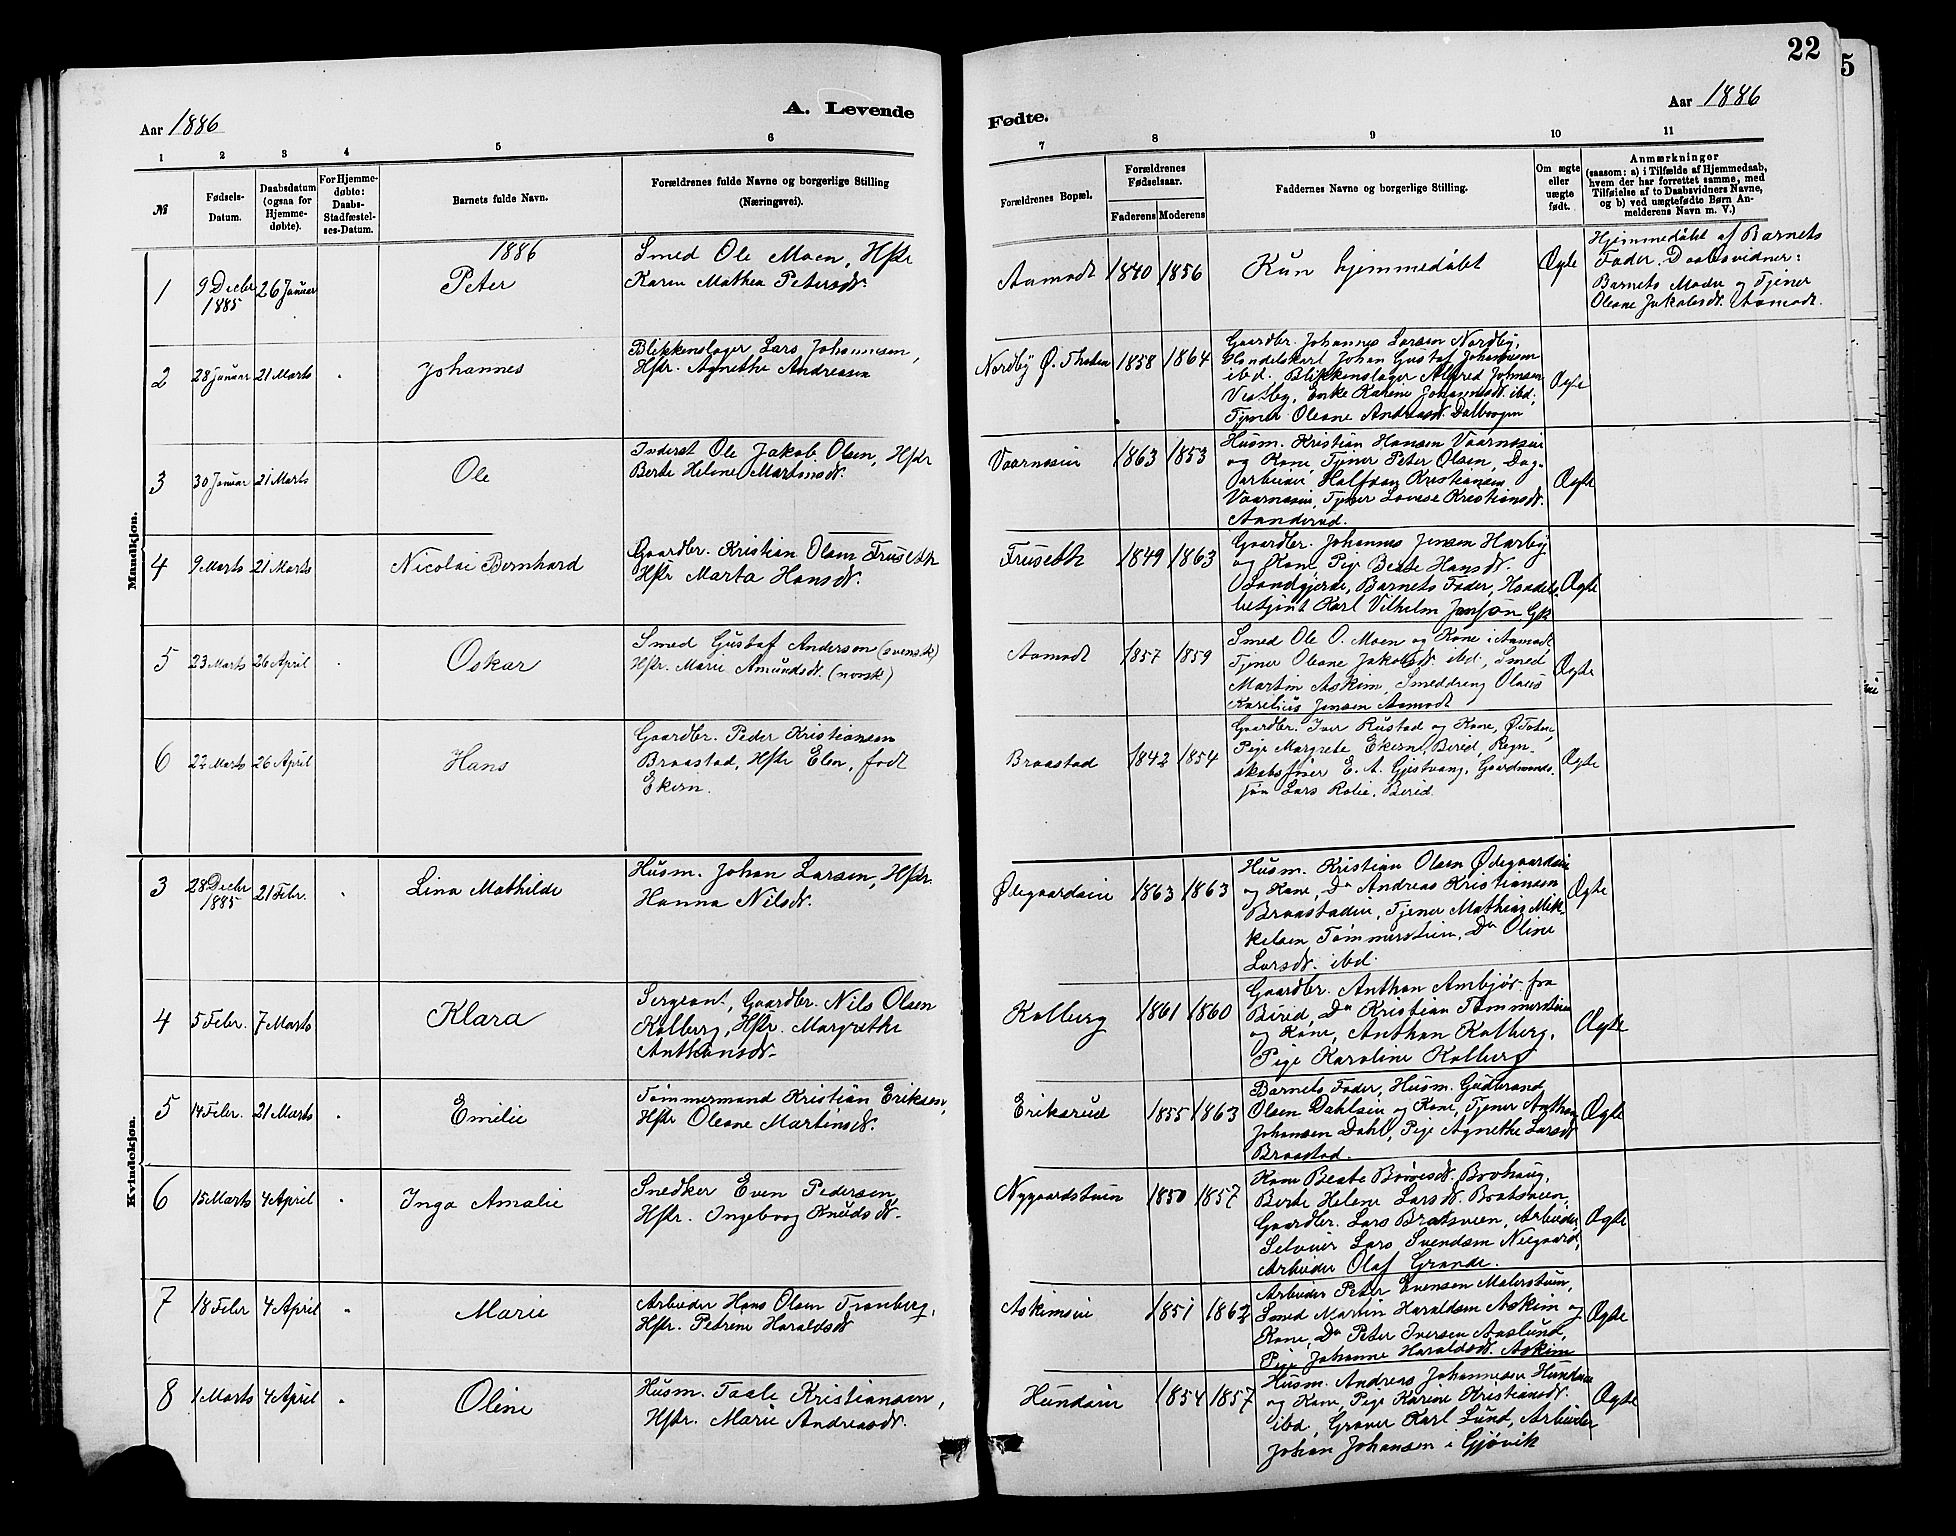 22
5
A. Levende
Fødte.
Aar 1886
Aar 1886
1 2 3 4 5 6 7 8 9 10 11
№
Fødsels-
Datum.
Daabsdatum
(ogsaa for
Hjemme-
døbte).
For Hjemme-
døbte:
Daabs-
Stadfæstel-
ses-Datum.
Barnets fulde Navn.
Forældrenes fulde Navne og borgerlige Stilling
(Næringsvei).
Forældrenes Bopæl.
Forældrenes
Fødselsaar.
Faderens
Moderens
Faddernes Navne og borgerlige Stilling.
Om ægte
eller
uægte
født.
Anmærkninger
(saasom: a) i Tilfælde af Hjemmedaab,
hvem der har forrettet samme, med
Tilføielse af to Daabsvidners Navne,
og b) ved uægtefødte Børn An-
melderens Navn m. V.)
Mandkjøn.
1886
1
9 Decbr
1885
26 Januar
Peter
Smed Ole Moen, Hstr
Karen Mathea Petersdt.
Aamodt
1840 1856
Kun hjemmedøbt
Ægte
Hjemmedøbt af Barnets
Fader. Daabsvidner:
Barnets Moder og Tjener
Oleane Jakobsdt. Aamodt.
2
28 Januar
21 Marts
Johannes
Blikkenslager Lars Johannesen,
Hstr. Agnethe Andreasen
Nordby Ø. Thoten
1858 1864
Gaardbr. Johannes Larsen Nordby,
Handelskarl Johan Gustaf Johannesen
ibd. Blikkenslager Alfred Johnsen
Vestby, Enke Karine Johannesdt. ibd.,
Tjener Oleane Andreasdt.
Ægte
3
30 Januar
21 Marts
Ole
Inderst Ole Jakob Olsen, Hstr
Berte Helene Martinsdt.
Vaarnæsie
1863 1853
Husm. Kristian Hansen Vaarnæsie
og Kone, Tjener Peter Olsen, Dag-
arbeider Halfvan Kristiansen
Vaarnæsie, Tjener Lovise Kristiansdt.
Aanderud.
Ægte
4
9 Marts
21 Marts
Nicolai Bernhard
Gaardbr. Kristian Olsen Fruseth
Hstr Marta Hansdt.
Fruseth
1849 1863
Gaardbr. Johannes Jensen Harby
og Kone, Pige Beate Hansdt.
Sandgjerde, Barnets Fader, Handels-
betjent Karl Vilhelm
Ægte
5
23 Marts
26 April
Oskar
Smed Gustaf Anderson (svensk)
Hstr. Marie Amundsdt. (norsk)
Aamodt
1857 1859
Smed Ole O. Moen og Kone i Aamodt
Tjener Oleane Jakobsdt. ibd., Smed
Martin Askim, Smeddreng Olaus
Karelius Jensen Aamodt
Ægte
6
22 Marts
26 April
Hans
Gaardbr. Peder Kristiansen
Braastad, Hstr Elen, født
Ekern.
Braastad
1842 1854
Gaardbr. Iver Rustad og Kone, Ø. Toten,
Pige Margrete Ekern, Bired, Regn-
skabsfører E. A. Gjestvang, Gaardmands-
søn Lars Rolie, Bired.
Ægte
Kvindekjøn.
3
28 Decbr
1885
21 Febr.
Lina Mathilde
Husm. Johan Larsen, Hstr.
Hanna Nilsdt.
Ødegaardseie
1863 1863
Husm. Kristian Olsen Ødegaardseie
og Kone, Do Andreas Kristiansen
Braastadeie, Tjener Mathias Mik-
kelsen Tømmerstuen, Do Oline
Larsdt. ibd.
Ægte
4
5 Febr.
7 Marts
Klara
Sergeant, Gaardbr. Nils Olsen
Kalberg, Hstr. Margrethe
Anthonsdt.
Kalberg
1861 1860
Gaardbr. Anthon Ambjør fra
Bired, Do Kristian Tømmerstuen
og Kone, Anthon Kalberg,
Pige Karoline Kalberg
Ægte
5
14 Febr.
21 Marts
Emilie
Tømmermand Kristian Eriksen,
Hstr Oleane Martinsdt.
Eriksrud
1855 1863
Barnets Fader, Husm. Gudbrand
Olsen Dahlseie og Kone, Tjener Anthon
Johansen Dahl, Pige Agnethe Larsdt
Braastad.
Ægte
6
15 Marts
4 April
Inga Amalie
Snedker Even Pedersen,
Hstr. Ingeborg Knudsdt.
Nygaardstuen
1850 1857
Kone Beate Børresdt. Brohaug,
Berte Helene Larsdt. Bratsveen,
Gaardbr. Lars Bratsveen, Arbeider,
Selveier Lars Svendsen Neegaard,
Arbeider Olaf Grande.
Ægte
7
18 Febr
4 April
Marie
Arbeider Hans Olsen Tranberg,
Hstr. Petrene Haraldsdt
Askimseie
1851 1862
Arbeider Peter Evensen Malerstuen,
Smed Martin Haraldsen Askim og
Kone, Do Peter Iversen Aaslund,
Pige Johanne Haraldsdt. Askim
Ægte
8
1 Marts
4 April
Oline
Husm. Taale Kristiansen,
Hstr. Marie Andreasdt.
Hundseie
1854 1857
Husm. Andreas Johannesen Hundseie
og Kone, Pige Karine Kristiansdt.
ibd, Graver Karl Lund, Arbeider
Johan Johansen i Gjøvik
Ægte